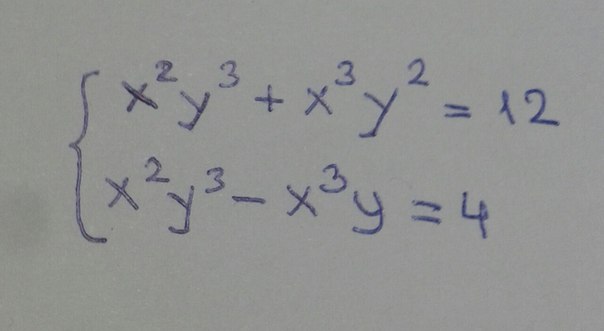 x²y³ + x³y² = 12
x²y³ − x³y = 4